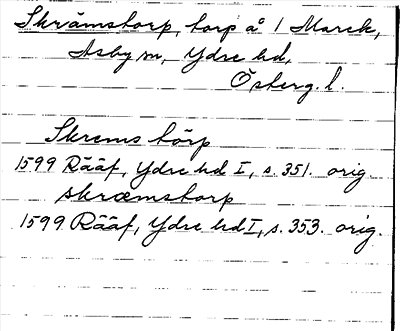 Skrämstorp, torp å 1 Marek,
Asby sn, Ydre hd,
Österg. l.
Skrems törp
1599 Rääf, Ydre hd I, s. 351. orig.
skræmstorp
1599 Rääf, Ydre hd I, s. 353. orig.